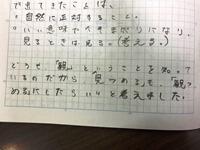 で出てきたことは、
・自然に正対すること。
・いい意味でべきだりになり、
見るときは見る。(考える。)
どうせ「観」ということを知って
いるのだから「見つめる」も、「観つ
める」にしたらいいと考えました。